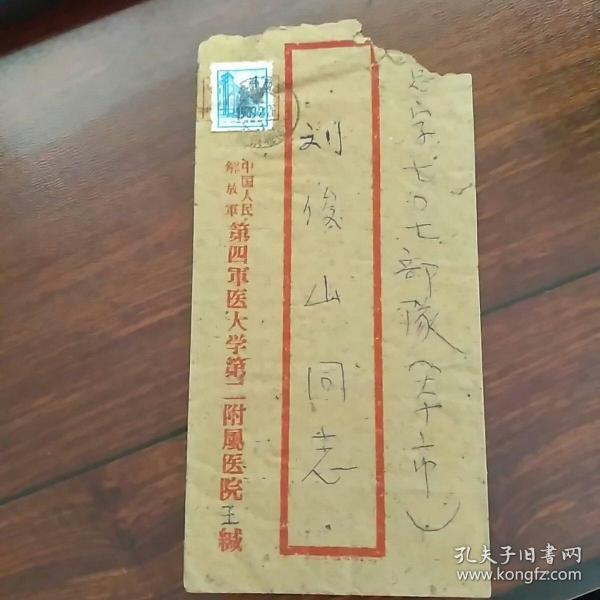 总字七〇七部隊(天市)
刘俊山同志
中国人民
解放軍
第四軍医大学第二附属医院王缄
孔夫子旧書网
www.kongfz.com